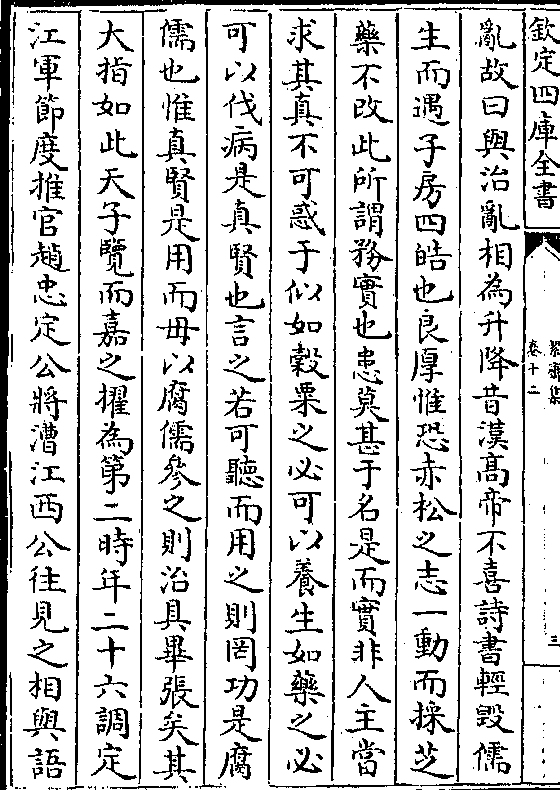 欽定四庫全書
卷十二
三
亂故曰與治亂相為升降昔漢髙帝不喜詩書輕毀儒
生而遇子房四皓也良厚惟恐赤松之志一動而採芝
藥不改此所謂務實也患莫甚于名是而實非人主當
求其真不可惑于似如榖粟之必可以養生如藥之必
可以伐病是真賢也言之若可聽而用之則罔功是腐
儒也惟真賢是用而毋以腐儒參之則治具畢張矣其
大指如此天子覽而嘉之擢為第二時年二十六調定
江軍節度推官趙忠定公將漕江西公往見之相與語